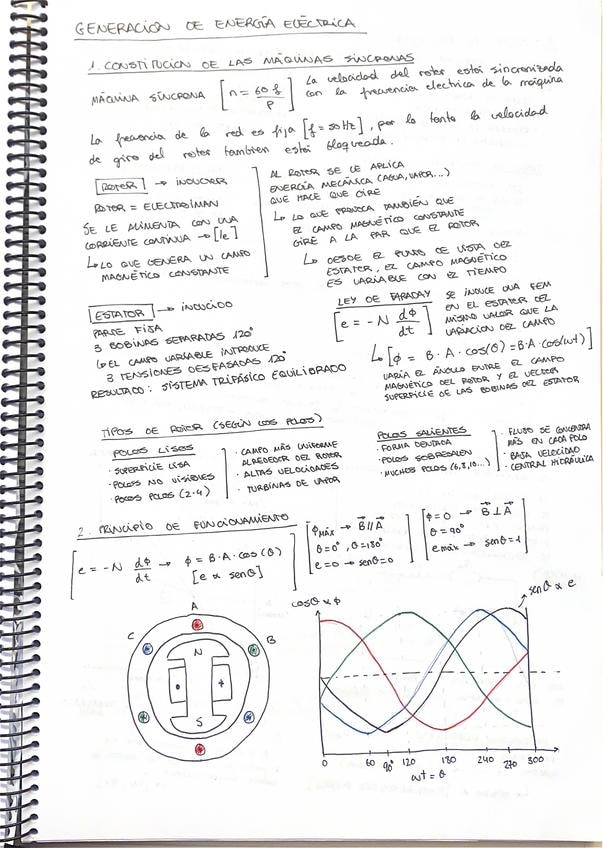 GENERACIÓN DE ENERGÍA ELÉCTRICA
1. CONSTITUCIÓN DE LAS MÁQUINAS SÍNCRONAS
MÁQUINA SÍNCRONA [n = 60f/P] La velocidad del rotor está sincronizada
con la frecuencia electrica de la máquina
La frecuencia de la red es fija [f = 50Hz], por lo tanto la velocidad
de giro del rotor tambien está bloqueada.
ROTOR → INDUCTOR
ROTOR = ELECTROIMÁN
SE LE ALIMENTA CON UNA
CORRIENTE CONTINUA → [Ie]
↳ LO QUE GENERA UN CAMPO
MAGNÉTICO CONSTANTE
AL ROTOR SE LE APLICA
ENERGÍA MECÁNICA (AGUA, VAPOR...)
QUE HACE QUE GIRE
↳ LO QUE PROVOCA TAMBIÉN QUE
EL CAMPO MAGNÉTICO CONSTANTE
GIRE A LA PAR QUE EL ROTOR
↳ DESDE EL PUNTO DE VISTA DEL
ESTATOR, EL CAMPO MAGNÉTICO
ES VARIABLE CON EL TIEMPO
ESTATOR → INDUCIDO
PARTE FIJA
3 BOBINAS SEPARADAS 120°
↳ EL CAMPO VARIABLE INTRODUCE
3 TENSIONES DESFASADAS 120°
RESULTADO: SISTEMA TRIFÁSICO EQUILIBRADO
LEY DE FARADAY
[e = -N dΦ/dt]
SE INDUCE UNA FEM
EN EL ESTATOR DEL
MISMO VALOR QUE LA
VARIACIÓN DEL CAMPO
↳ [ϕ = B · A · cos(θ) = B·A·cos(ωt)]
VARÍA EL ÁNGULO ENTRE EL CAMPO
MAGNÉTICO DEL ROTOR Y EL VECTOR
SUPERFICIE DE LAS BOBINAS DEL ESTATOR
TIPOS DE ROTOR (SEGÚN LOS POLOS)
POLOS LISOS
· SUPERFICIE LISA
· POLOS NO VISIBLES
· POCOS POLOS (2-4)
· CAMPO MÁS UNIFORME
ALREDEDOR DEL ROTOR
· ALTAS VELOCIDADES
· TURBINAS DE VAPOR
POLOS SALIENTES
· FORMA DENTADA
· POLOS SOBRESALEN
· MUCHOS POLOS (6,8,10...)
· FLUJO SE CONCENTRA
MÁS EN CADA POLO
· BAJA VELOCIDAD
· CENTRAL HIDRÁULICA
2. PRINCIPIO DE FUNCIONAMIENTO
[e = -N dϕ/dt → ϕ = B·A·cos(θ)
[e ∝ senθ]
ϕMÁX → B⃗ // A⃗
θ=0°, θ=180°
e=0 → senθ=0
ϕ=0 → B⃗ ⊥ A⃗
θ = 90°
e máx → senθ=1
A
C
B
N
S
cosθ ∝ ϕ
senθ ∝ e
0 60 90° 120 180 240 270 300
ωt = θ